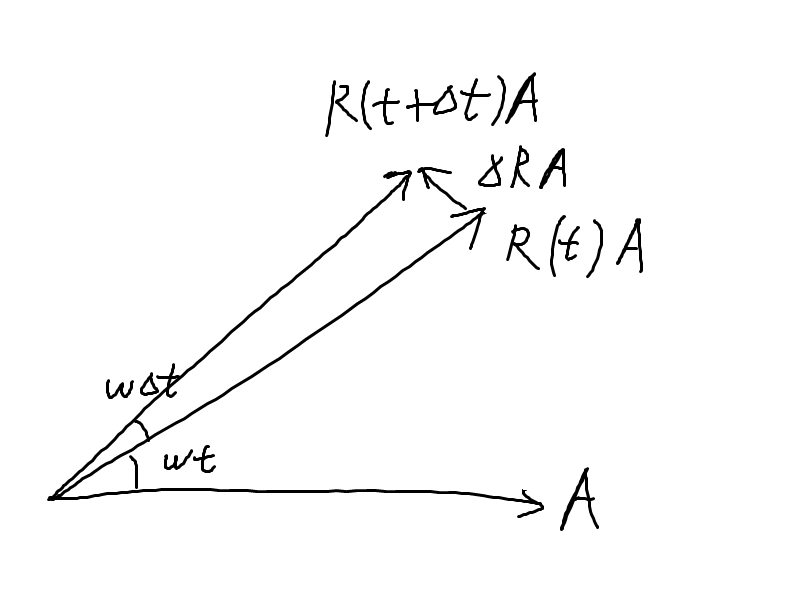 R(t+Δt)A
ΔRA
R(t)A
wΔt
wt
A